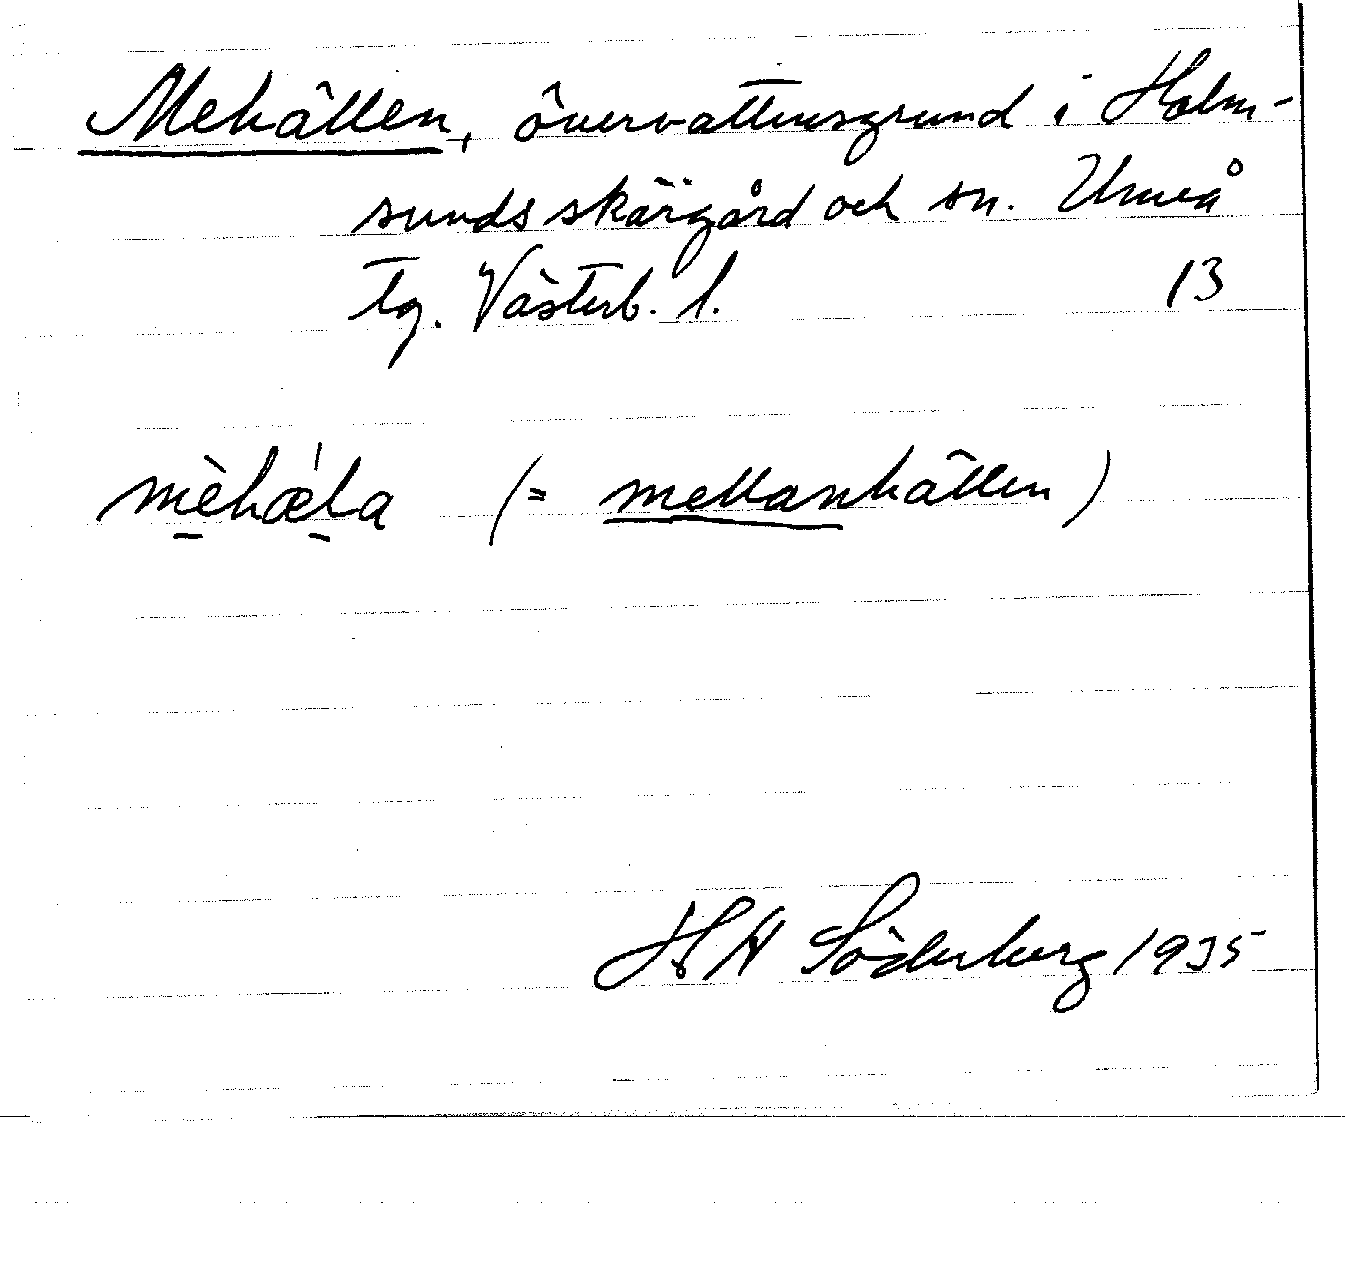 Mehällen, övervattensgrund i Holm-
sunds skärgård och sn. Umeå
tg. Västerb. l. 13
mèhæ̀la (= mellanhällen)
H A Söderberg 1935